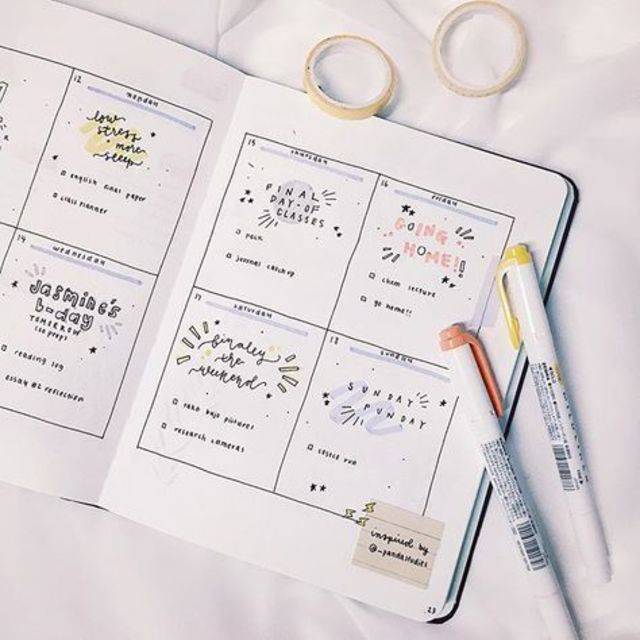 12 monday
low
stress
more
sleep
english final paper
class planner
14 wednesday
Jasmine's
b-day
TOMORROW
reading log
essay #2 reflection
15 thursday
FINAL
DAY OF
CLASSES
pack
journal catchup
16 friday
GOING
HOME!!
chem lecture
go home!!
17 saturday
finally
the
weekend
take bujo pictures
research cameras
18 sunday
SUNDAY
FUNDAY
costco run
inspired by
@-pandastudies
23